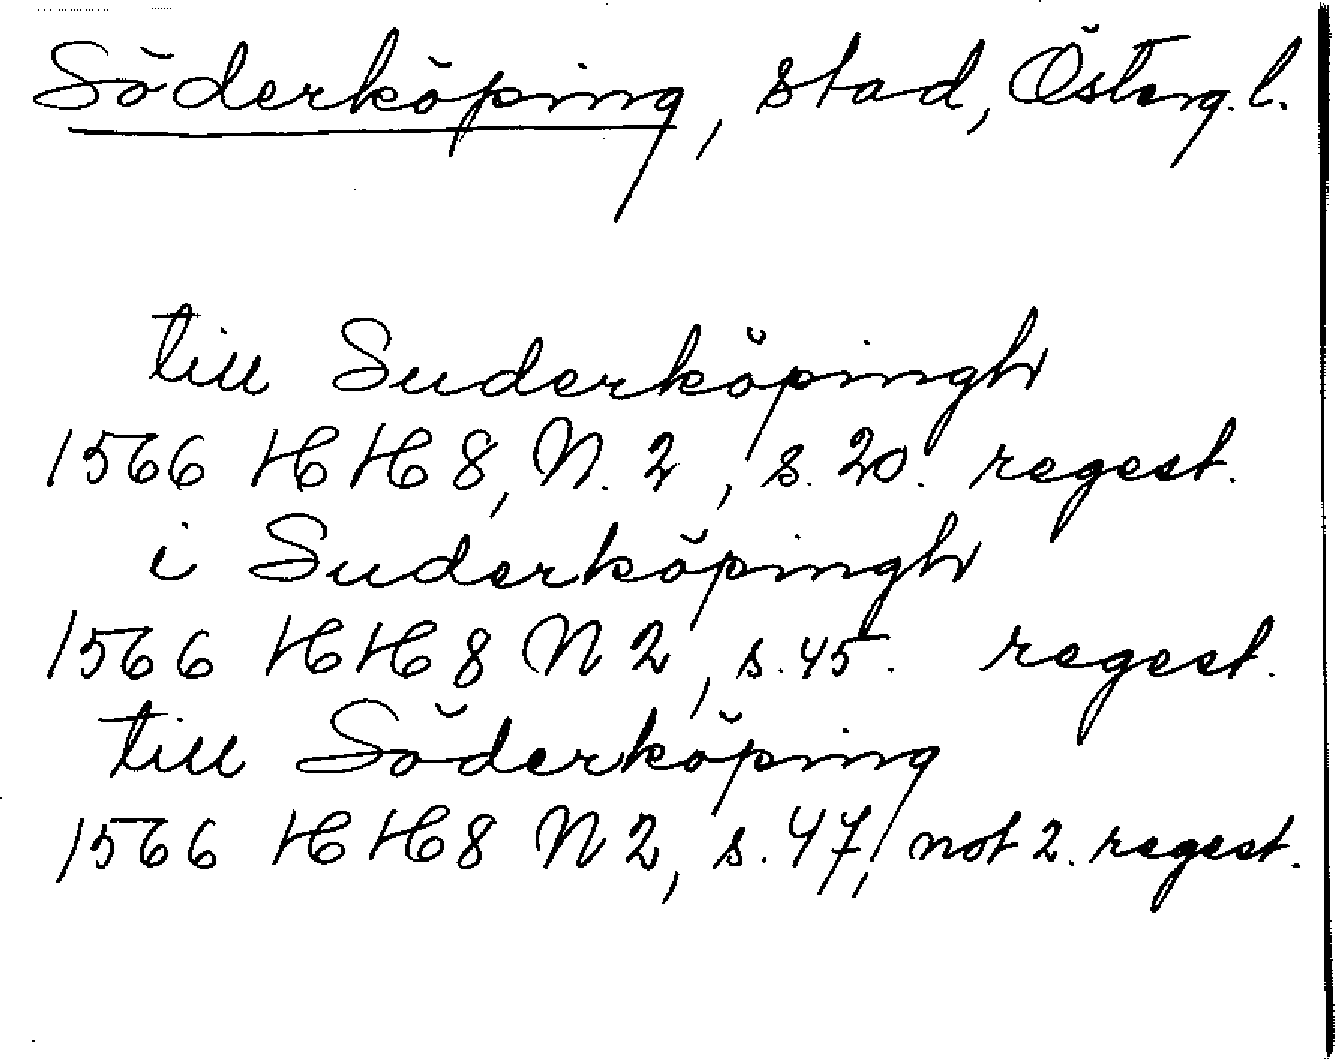 Söderköping, stad, Österg. l.
till Suderköpingh
1566 HH 8, N. 2, s. 20. regest.
i Suderköpingh
1566 HH 8 N 2, s. 45. regest.
till Söderköping
1566 HH 8 N 2, s. 47, not 2. regest.